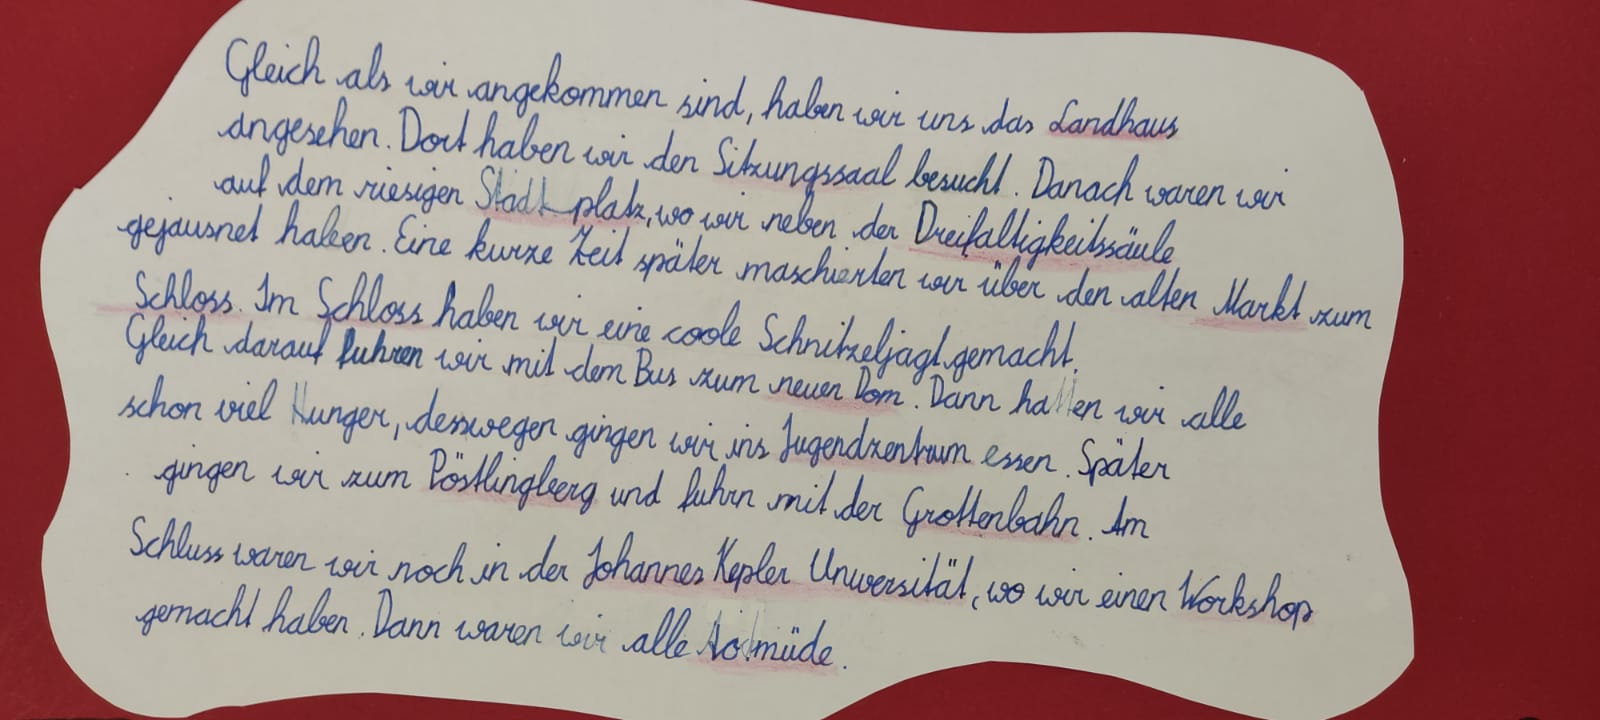 Gleich als wir angekommen sind, haben wir uns das Landhaus
angesehen. Dort haben wir den Sitzungssaal besucht. Danach waren wir
auf dem riesigen Stadtplatz, wo wir neben der Dreifaltigkeitssäule
gejausnet haben. Eine kurze Zeit später maschierten wir über den alten Markt zum
Schloss. Im Schloss haben wir eine coole Schnitzeljagt gemacht.
Gleich darauf fuhren wir mit dem Bus zum neuen Dom. Dann hatten wir alle
schon viel Hunger, desswegen gingen wir ins Jugendzentrum essen. Später
gingen wir zum Pöstlingberg und fuhrn mit der Grottenbahn. Am
Schluss waren wir noch in der Johannes Kepler Universität, wo wir einen Workshop
gemacht haben. Dann waren wir alle todmüde.